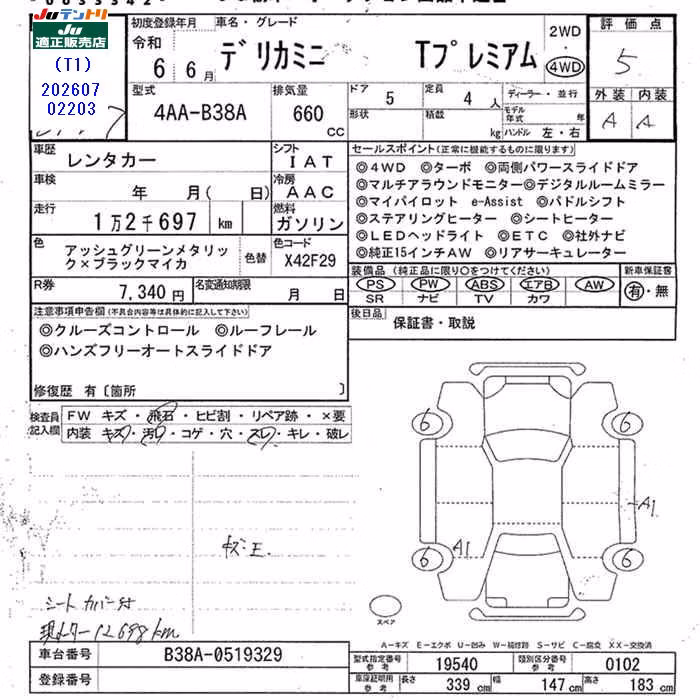 Juテントリ
JU適正販売店
(T1)
202607
02203
初度登録年月
令和
6 6月
車名・グレード
デリカミニ Tプレミアム
2WD
・
4WD
評価点
5
型式
4AA-B38A
排気量
660
CC
ドア
5
定員
4人
ディーラー・並行
形状
積載
kg
モデル年式 年
ハンドル 左・右
外装 内装
A A
車歴
レンタカー
シフト
IAT
車検
年 月( 日)
冷房
AAC
走行
1万2千697 km
燃料
ガソリン
色
アッシュグリーンメタリック×ブラックマイカ
色替
色コード
X42F29
R券
7,340円
名変通知期限
月 日
セールスポイント(正常に機能するものに限ります)
◎4WD ◎ターボ ◎両側パワースライドドア
◎マルチアラウンドモニター◎デジタルルームミラー
◎マイパイロット e-Assist ◎パドルシフト
◎ステアリングヒーター ◎シートヒーター
◎LEDヘッドライト ◎ETC ◎社外ナビ
◎純正15インチAW ◎リアサーキュレーター
装備品(純正品に限り○をつけてください)
新車保証書
PS PW ABS エアB AW
有・無
SR ナビ TV カワ
後日品
保証書・取説
注意事項申告欄(不具合内容等は具体的に記入して下さい)
◎クルーズコントロール ◎ルーフレール
◎ハンズフリーオートスライドドア
修復歴 有〔箇所 〕
検査員記入欄
FW キズ・飛石・ヒビ割・リペア跡・×要
内装 キズ・汚れ・コゲ・穴・スレ・キレ・破レ
6 6
A1
6 A1 6
シートカバー付
現メーター12698km
スペア
A-キズ E-エクボ U-凹み W-補修跡 S-サビ C-腐食 XX-交換済
車台番号
B38A-0519329
登録番号
型式指定番号
参考
19540
類別区分番号
参考
0102
車庫証明用
参考
長さ 339cm 幅 147cm 高さ 183cm